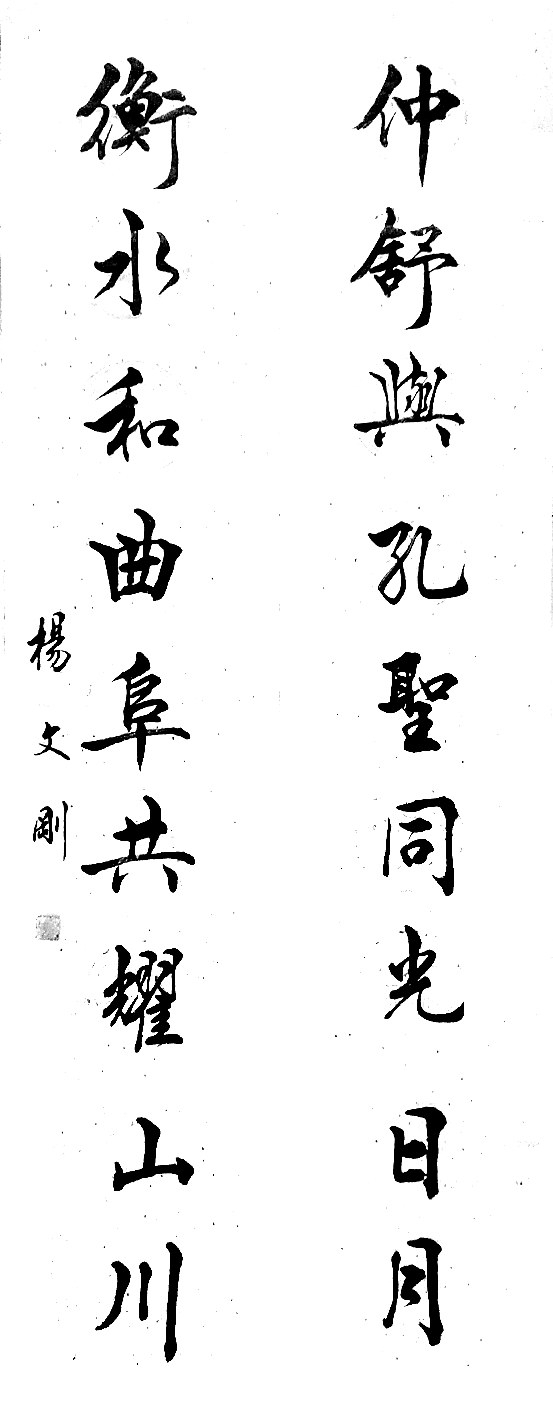 仲舒與孔聖同光日月
衡水和曲阜共耀山川
楊文剛